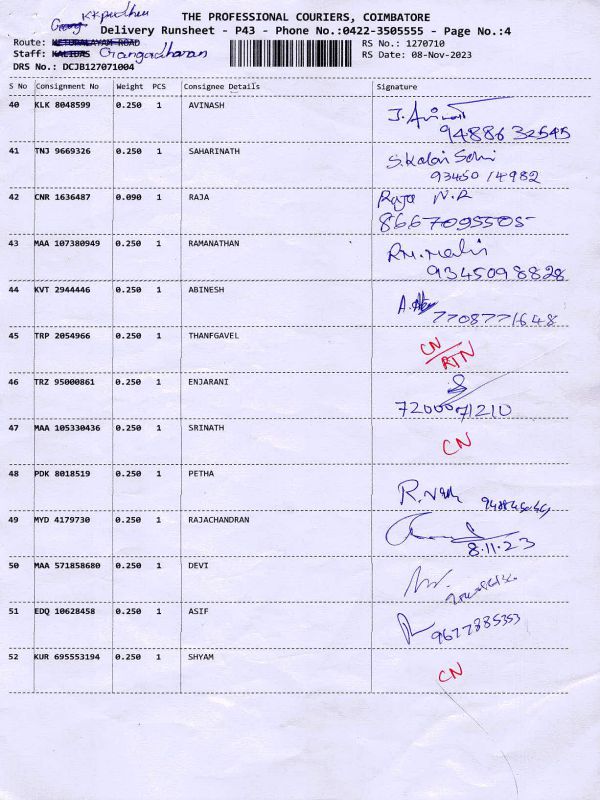 KKpudhur
THE PROFESSIONAL COURIERS, COIMBATORE
Delivery Runsheet - P43 - Phone No.:0422-3505555 - Page No.:4
Route: METUPALAYAM ROAD
RS No.: 1270710
Staff: KALIDAS Gangadharan
RS Date: 08-Nov-2023
DRS No.: DCJB127071004
S No Consignment No Weight PCS Consignee Details Signature
40 KLK 8048599 0.250 1 AVINASH J. Avinash
9488632545
41 TNJ 9669326 0.250 1 SAHARINATH S.Kalai Selvi
9345014982
42 CNR 1636487 0.090 1 RAJA Raja N.R
8667095505
43 MAA 107380949 0.250 1 RAMANATHAN RM.
9345098828
44 KVT 2944446 0.250 1 ABINESH A.
7708771648
45 TRP 2054966 0.250 1 THANFGAVEL CN
RTN
46 TRZ 95000861 0.250 1 ENJARANI
7200071210
47 MAA 105330436 0.250 1 SRINATH CN
48 PDK 8018519 0.250 1 PETHA R.
49 MYD 4179730 0.250 1 RAJACHANDRAN
8.11.23
50 MAA 571858680 0.250 1 DEVI
51 EDQ 10628458 0.250 1 ASIF
9677885353
52 KUR 695553194 0.250 1 SHYAM CN